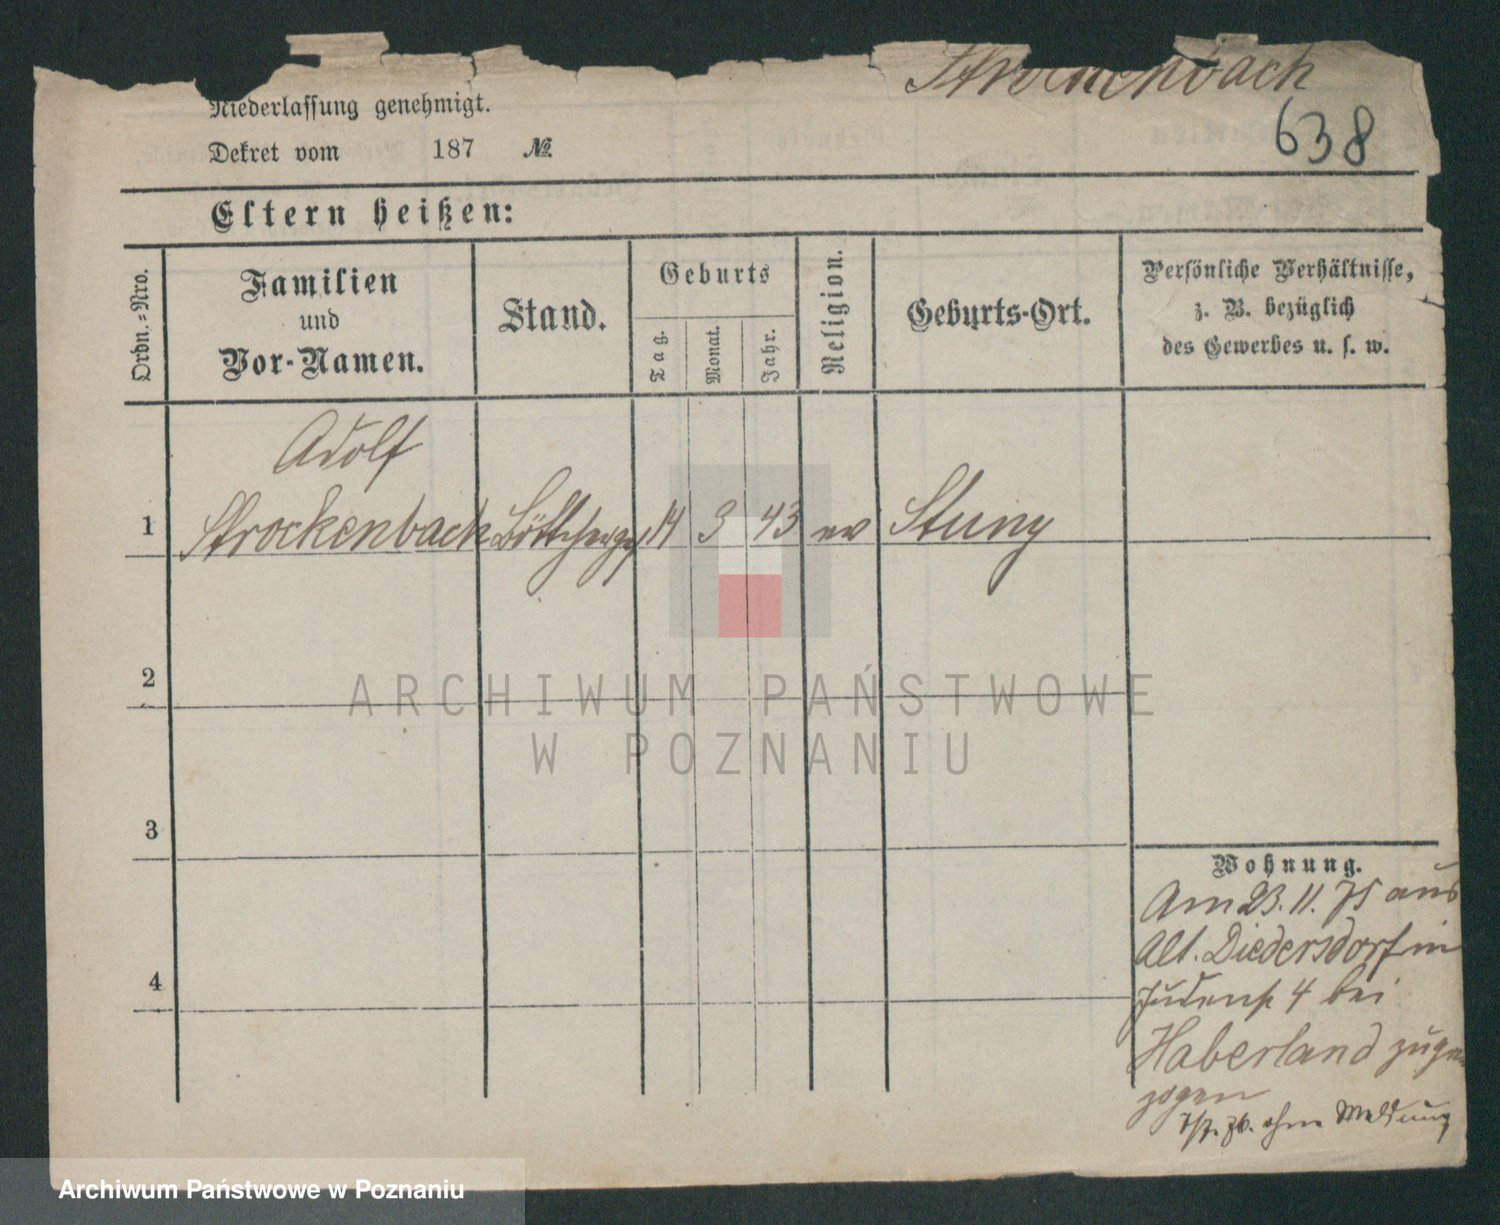 Strockenbach
638
Niederlassung genehmigt.
Dekret vom 187 №
Eltern heißen:
Ordn.-Nro.
Familien
und
Vor-Namen.
Stand.
Geburts
Tag.
Monat.
Jahr.
Religion.
Geburts-Ort.
Persönliche Verhältnisse,
z. B. bezüglich
des Gewerbes u. s. w.
Adolf
1 Strockenbach Böttcherges 14 3 43 ev Stuny
2
ARCHIWUM PAŃSTWOWE
W POZNANIU
3
4
Wohnung.
Am 23.11.75 aus
Alt. Diedersdorf in
Judenst 4 bei
Haberland zuge
zogen
ohne Meldung
Archiwum Państwowe w Poznaniu